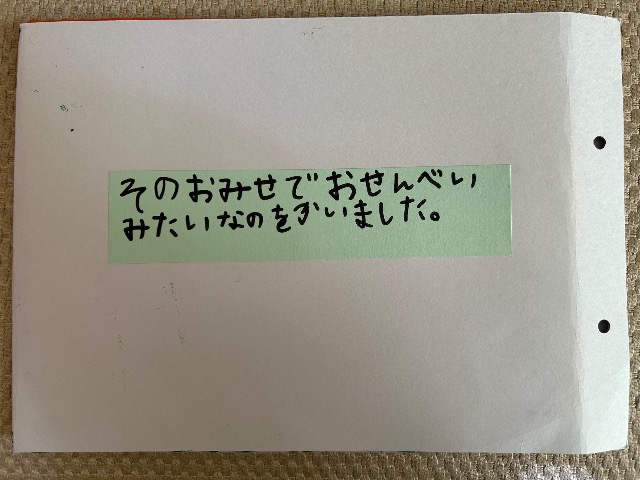 そのおみせでおせんべい
みたいなのをかいました。